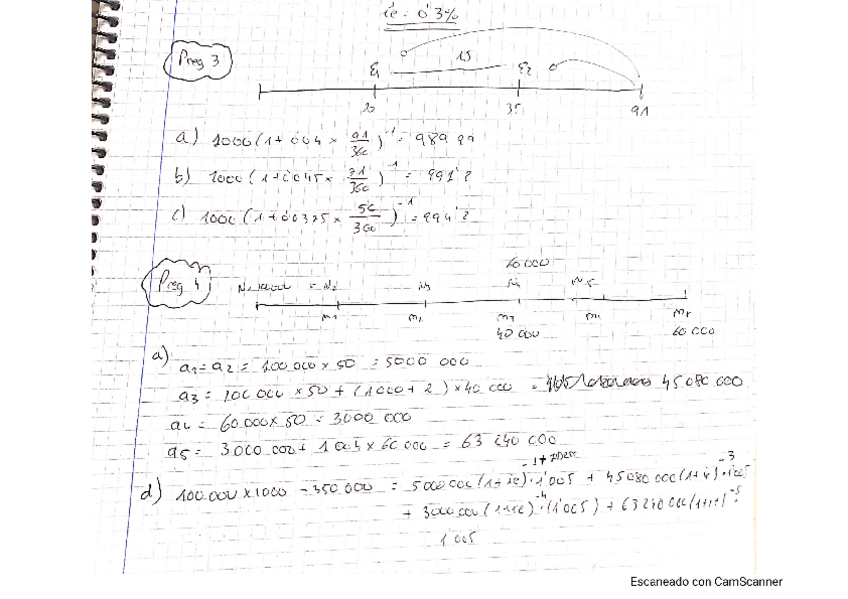 ie = 0'3%
Preg 3
15
E1 E2
20 35 91
a) 1000(1+0'04 × 91/360)^-1 = 989'99
b) 1000(1+0'045 × 71/360)^-1 = 991'2
c) 1000(1+0'0375 × 56/360)^-1 = 994'2
60 000
Preg 4
m1 m2 m3
40 000 60 000
a) a1 = a2 = 100 000 × 50 = 5000 000
a3 = 100 000 × 50 + (1000 + 2) × 40 000 = 45 080 000
a4 = 60 000 × 50 = 3000 000
a5 = 3 000 000 + 1 004 × 60 000 = 63 240 000
d) 100 000 × 1000 - 350 000 = 5000 000 (1+ie)^-1 · 1'005 + 45080 000 (1+ie)^-3 · 1'005
+ 3000 000 (1+ie)^-4 · (1'005) + 63 240 000 (1+ie)^-5 ·
1'005
Escaneado con CamScanner